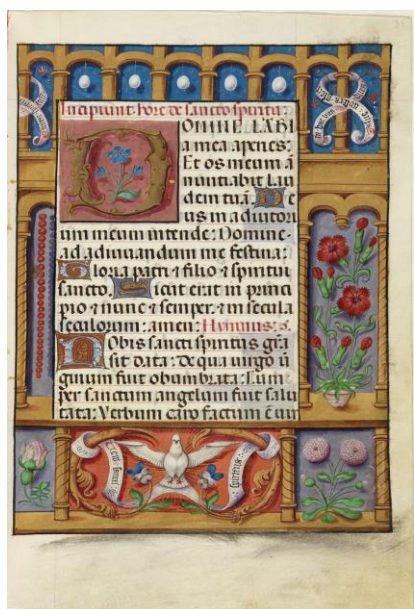 Incipiunt hore de sancto spiritu:
DOMINE LABI
a mea aperies:
Et os meum ā
nuntiabit lau
dem tuā. De
us in adiutori
um meum intende: Domine
ad adiuvandum me festina:
Gloria patri ⁊ filio ⁊ spiritui
sancto. Sicut erat in princi
pio ⁊ nunc ⁊ semper: ⁊ in secula
seculorum: amen: Hymnus:
Nobis sancti spiritus grā
sit data: De qua virgo vi
ginum fuit obumbrata: Cum
per sanctum angelum fuit salu
tata: Verbum caro factum ē